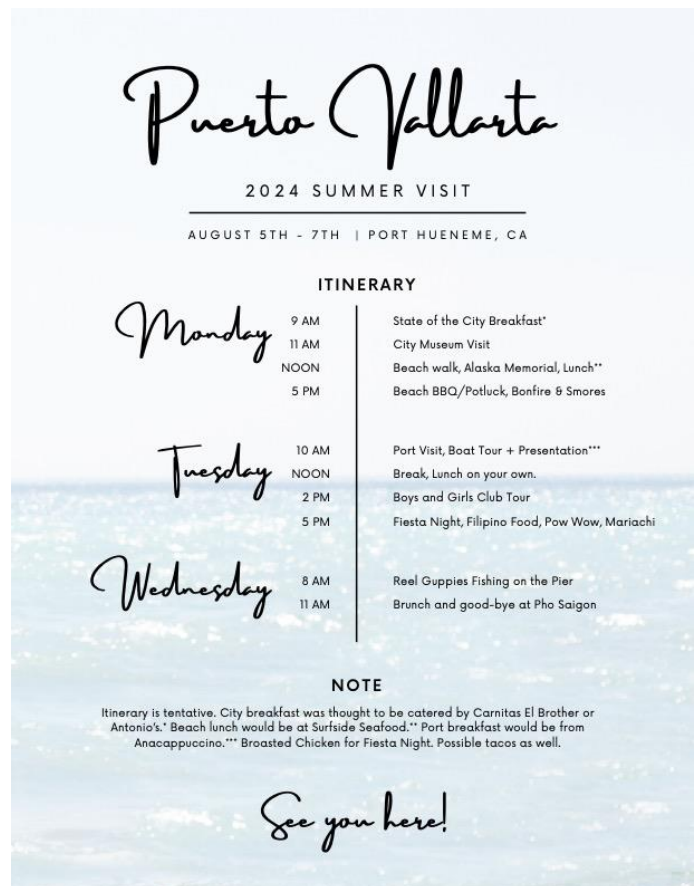 Puerto Vallarta
2024 SUMMER VISIT
AUGUST 5TH - 7TH | PORT HUENEME, CA
ITINERARY
Monday
9 AM State of the City Breakfast*
11 AM City Museum Visit
NOON Beach walk, Alaska Memorial, Lunch**
5 PM Beach BBQ/Potluck, Bonfire & Smores
Tuesday
10 AM Port Visit, Boat Tour + Presentation***
NOON Break, Lunch on your own.
2 PM Boys and Girls Club Tour
5 PM Fiesta Night, Filipino Food, Pow Wow, Mariachi
Wednesday
8 AM Reel Guppies Fishing on the Pier
11 AM Brunch and good-bye at Pho Saigon
NOTE
Itinerary is tentative. City breakfast was thought to be catered by Carnitas El Brother or
Antonio's.* Beach lunch would be at Surfside Seafood.** Port breakfast would be from
Anacappuccino.*** Broasted Chicken for Fiesta Night. Possible tacos as well.
See you here!